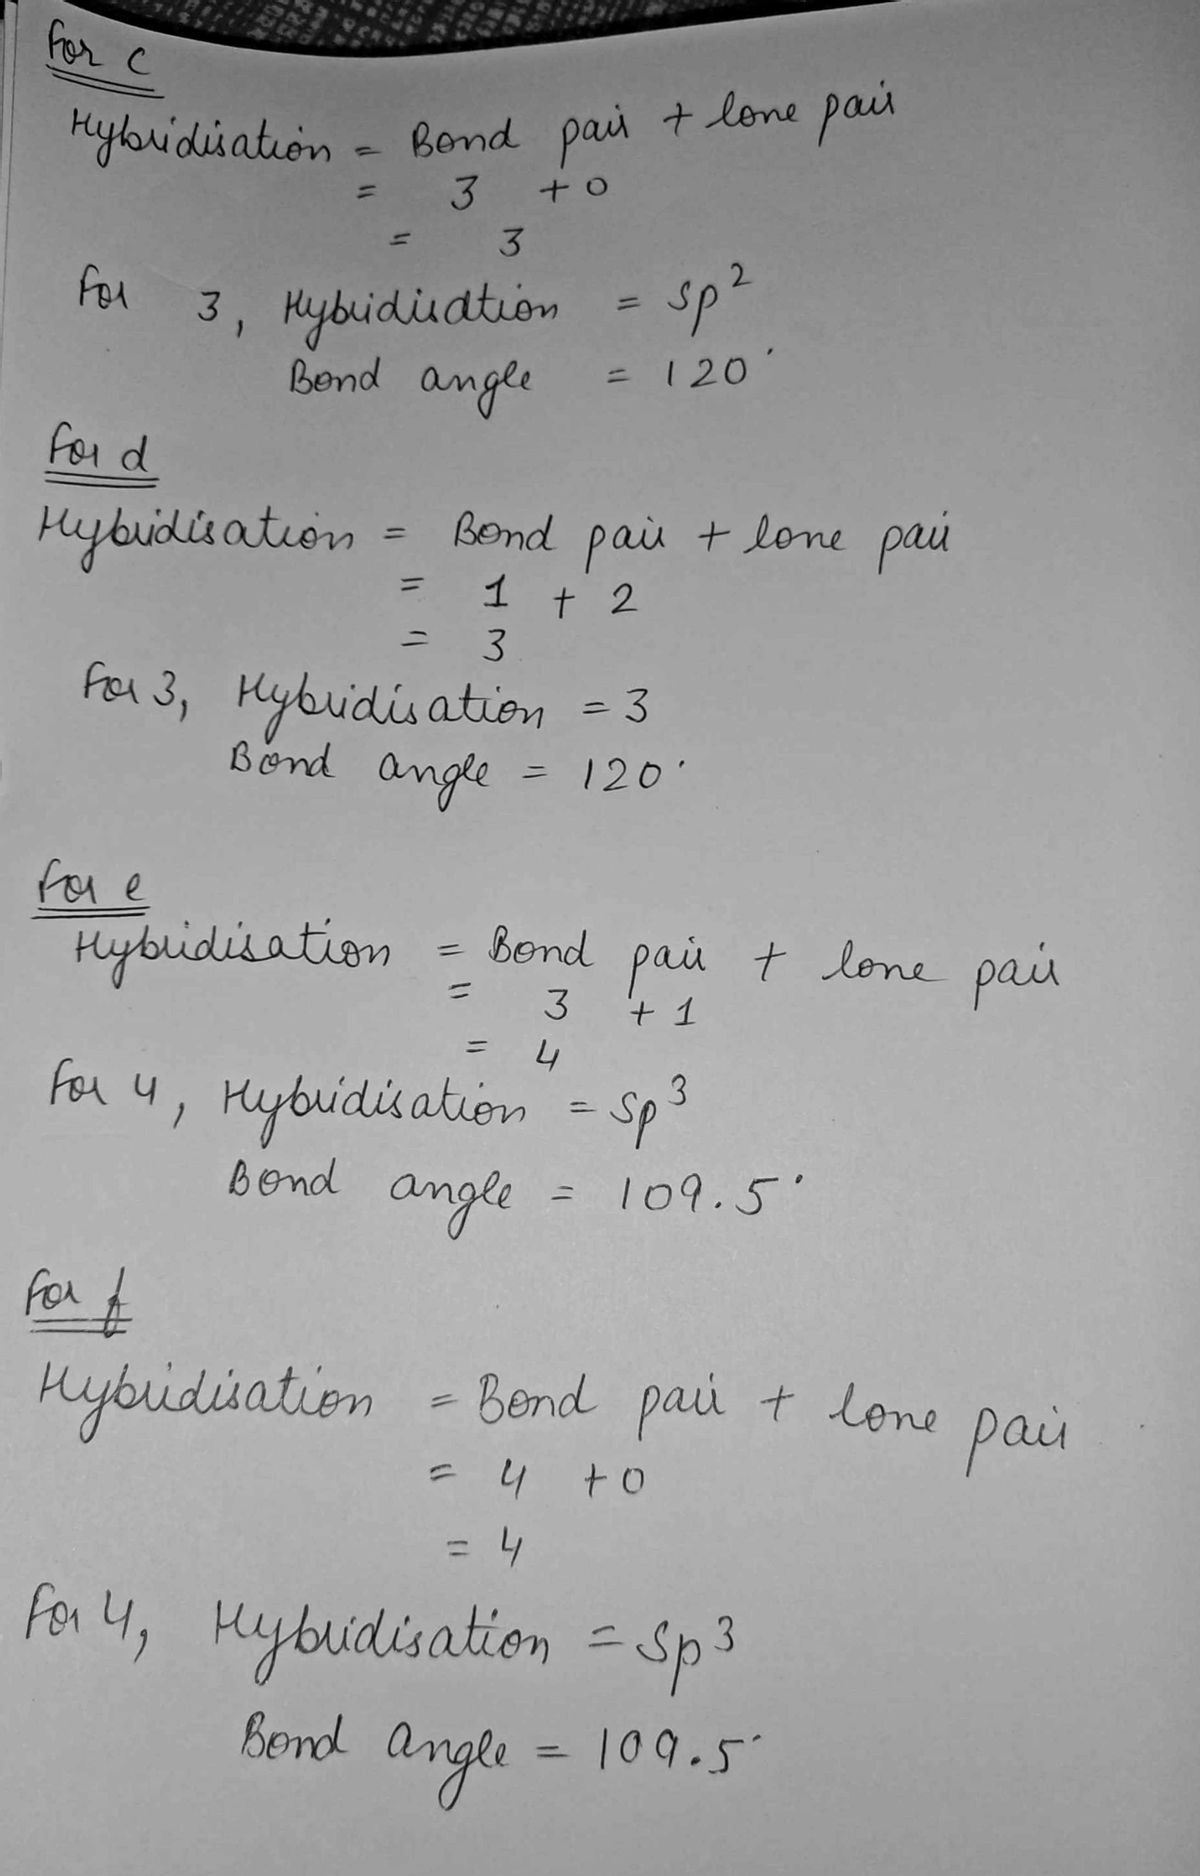 For c
Hybridisation = Bond pair + lone pair
= 3 + 0
= 3
For 3, Hybridisation = sp²
Bond angle = 120°
For d
Hybridisation = Bond pair + lone pair
= 1 + 2
= 3
For 3, Hybridisation = 3
Bond angle = 120°
For e
Hybridisation = Bond pair + lone pair
= 3 + 1
= 4
For 4, Hybridisation = sp³
Bond angle = 109.5°
For f
Hybridisation = Bond pair + lone pair
= 4 + 0
= 4
For 4, Hybridisation = sp³
Bond angle = 109.5°